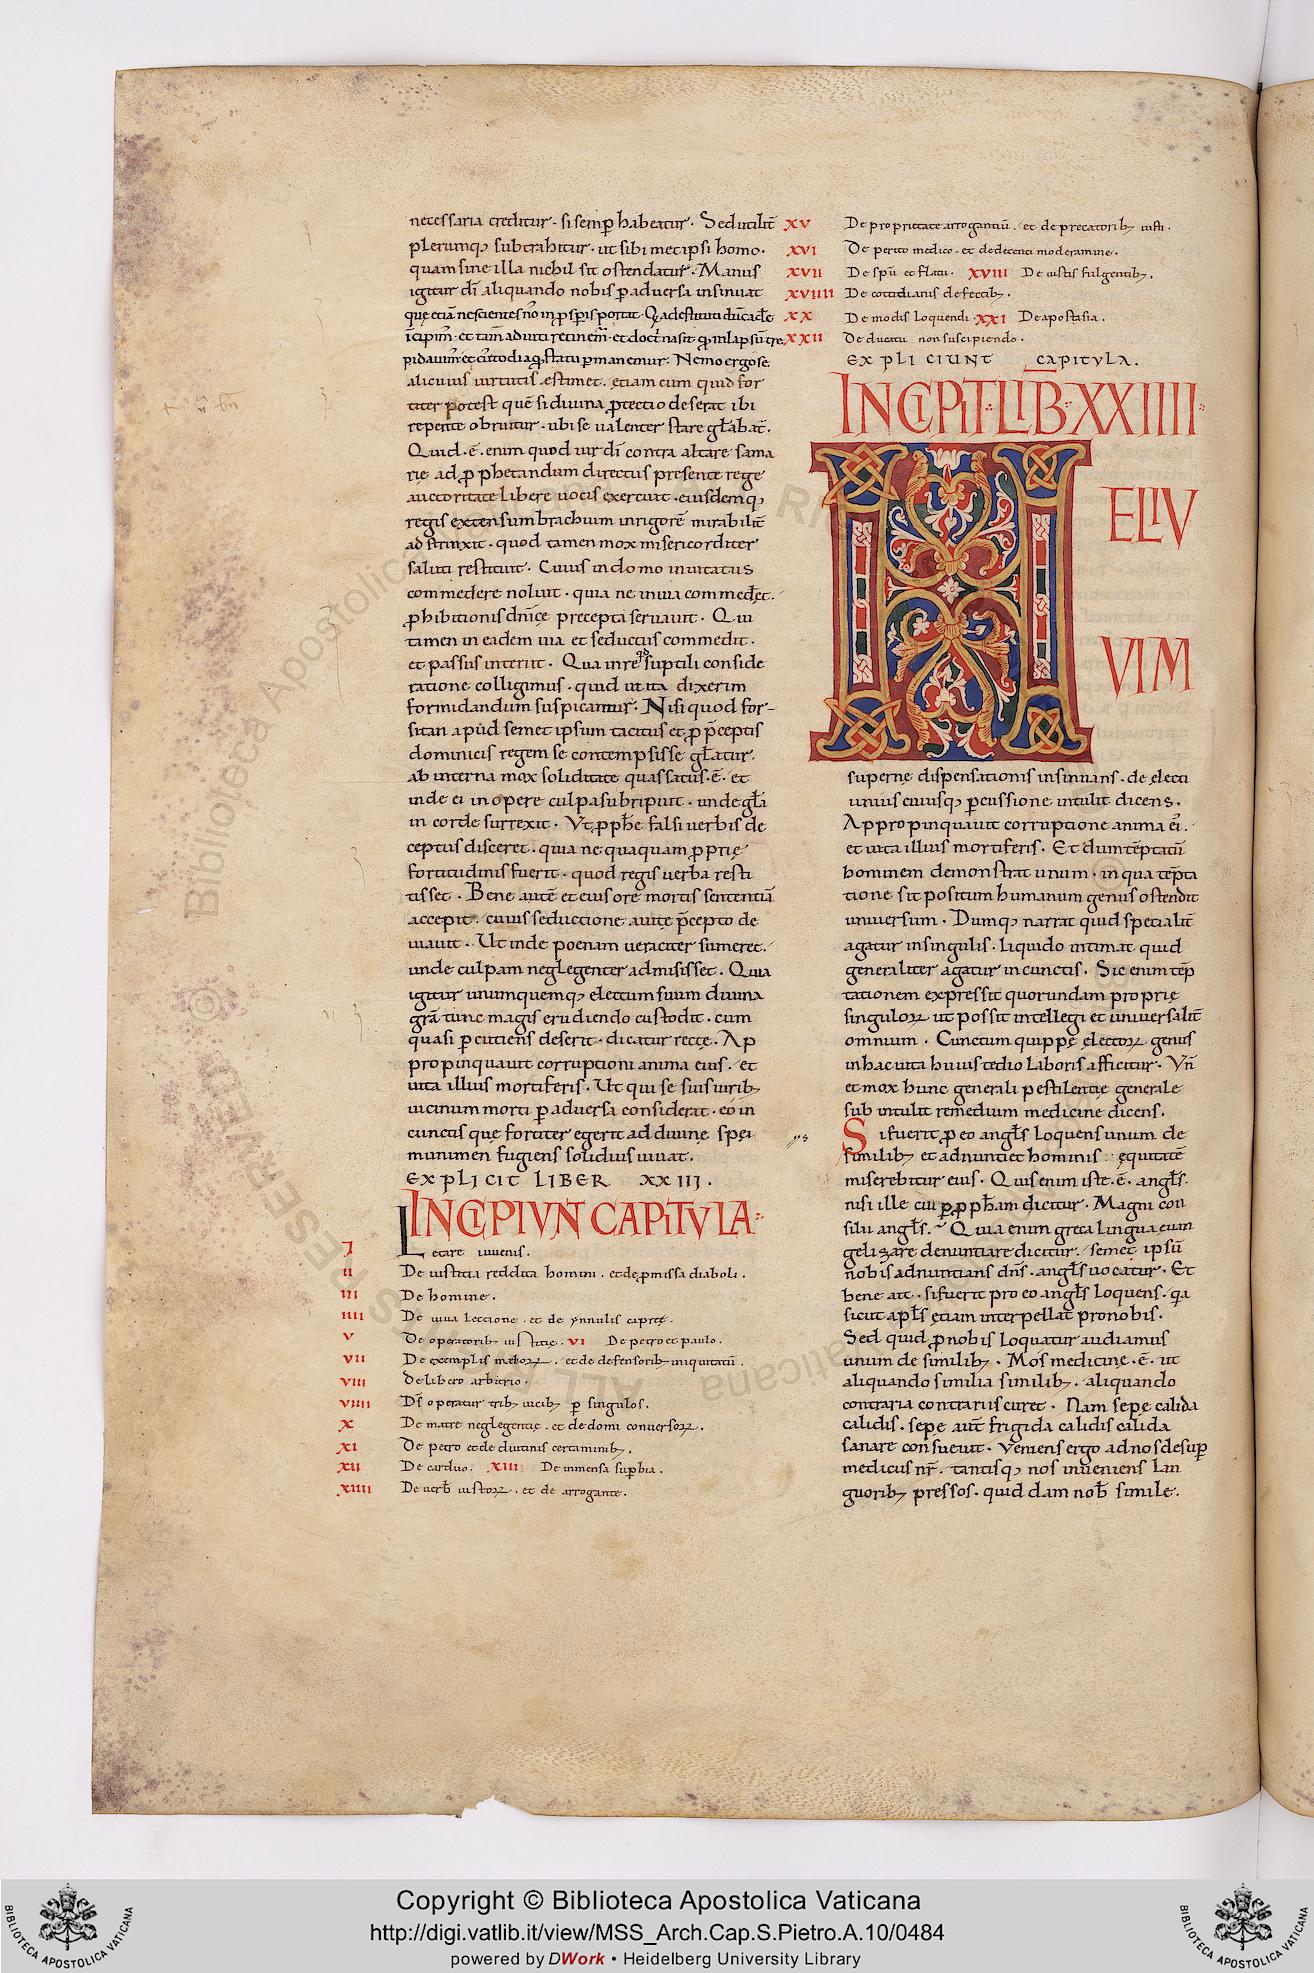 necessaria creditur. si semꝑ habeatur. Sed utilit̄
plerumq; subtrahitur. ut sibimetipsi homo.
quam sine illa nichil sit ostendatur. Manus
igitur dī aliquando nobis ꝑ aduersa insinuat
alicuius uirtutis ęstimet. etiam cum quid for
titer potest quē si diuina ꝓtectio deserat ibi
repente obruitur. ubi se ualenter stare gl̄abat̄.
Quid .ē. enim quod uir dī contra altare sama
rie ad ꝓphetandum directus presente rege
auctoritate libere uocis exercuit. eiusdemq;
regis extensum brachium in rigorē mirabilit̄
adstrinxit. quod tamen mox misericorditer
saluti restituit. Cuius in domo inuitatus
commedere noluit. quia ne in uia commederet.
ꝓhibitionis dn̄icę precepta seruauit. Qui
tamen in eadem uia et seductus commedit.
et passus interiit. Qua in re suptili conside
ratione colligimus. quid ut ita dixerim
formidandum suspicamur. Nisi quod for-
sitan apud semet ipsum tacitus et ꝓ p̄ceptis
dominicis regem se contempsisse gl̄atur.
ab interna mox soliditate quassatus .ē. et
inde ei in opere culpa subripuit. unde gl̄a
in corde surrexit. Vt ꝓph̄e falsi uerbis de
ceptus disceret. quia nequaquam ꝓprię
fortitudinis fuerit. quod regis uerba resti
tisset. Bene autē et eius ore mortis sententiā
accepit. cuius seductione a uitę p̄cepto de
uiauit. Ut inde poenam ueraciter sumeret.
unde culpam neglegenter admisisset. Quia
igitur unumquemq; electum suum diuina
grā tunc magis erudiendo custodit. cum
quasi ꝑcutiens deserit. dicatur recte. Ap
propinquauit corruptioni anima eius. et
uita illius mortiferis. Ut qui se suis uirib;
uicinum morti ꝑ aduersa considerat. eo in
cunctis quę fortiter egerit ad diuinę spei
munimen fugiens solidius uiuat.
EXPLICIT LIBER XXIII.
INCIPIVN CAPITVLA
I Letare iuuenis.
II De iustitia reddita homini. et de ꝓmissa diaboli.
III De homine.
IIII De uiua lectione. et de ynnulis caprę.
V De operatorib; iustitię. VI De petro et paulo.
VII De exemplis malorum. et de defensorib; iniquitatū.
VIII De libero arbitrio.
VIIII Ds̄ operatur trib; uicib; ꝑ singulos.
X De matre neglegentię. et de domi conuersorum.
XI De petro et de diutinis certaminib;.
XII De carduo. XIII De inmensa suꝑbia.
XIIII De uerb̄ iustorum. et de arrogante.
XV De proprietate arrogantiū. et de precatorib; iusti.
XVI De perito medico. et de decenti moderamine.
XVII De spū et flatu. XVIII De iustis fulgentib;.
XVIIII De cottidianis defectib;.
XX De modis loquendi. XXI De apostasia.
XXII De ducatu non suscipiendo.
EXPLICIUNT CAPITVLA.
INCIPIT LIB̄ XXIIII
HELIV
VIM
superne dispensationis insinuans. de electi
uniuscuiusq; ꝑcussione intulit dicens.
Appropinquauit corruptione anima ei'.
et uita illius mortiferis. Et dum tēptatū
hominem demonstrat unum. in qua tēpta
tione sit positum humanum genus ostendit
uniuersum. Dumq; narrat quid specialit̄
agatur in singulis. liquido intimat quid
generaliter agatur in cunctis. Sic enim tēp
tationem expressit quorundam proprię
singulorum ut possit intellegi et uniuersalit̄
omnium. Cunctum quippę electorum genus
in hac uita huius tedio laboris afficitur. Vn̄
et mox hunc generali pestilentię generale
sub intulit remedium medicine dicens.
Si fuerit ꝓ eo angl̄s loquens unum de
similib; et adnuntiet hominis ęquitatē
miserebitur eius. Quis enim iste .ē. angl̄s.
nisi ille cui ꝑ ꝓph̄am dicitur. Magni con
silii angl̄s. Quia enim greca lingua euan
gelizare denuntiare dicitur. semet ipsū
nobis adnuntians dn̄s. angl̄s uocatur. Et
bene ait. si fuerit pro eo angl̄s loquens. qa
sicut apl̄s etiam interpellat pro nobis.
Sed quid ꝓ nobis loquatur audiamus
unum de similib;. Mos medicine .ē. ut
aliquando similia similib;. aliquando
contraria contrariis curet. Nam sepe calida
calidis. sepe aut̄ frigida calidis calida
sanare consueuit. Veniens ergo ad nos desuꝑ
medicus nr̄. tantisq; nos inueniens lan
guorib; pressos. quiddam nob̄ simile.
Copyright © Biblioteca Apostolica Vaticana
http://digi.vatlib.it/view/MSS_Arch.Cap.S.Pietro.A.10/0484
powered by DWork • Heidelberg University Library
BIBLIOTECA APOSTOLICA VATICANA
BIBLIOTECA APOSTOLICA VATICANA